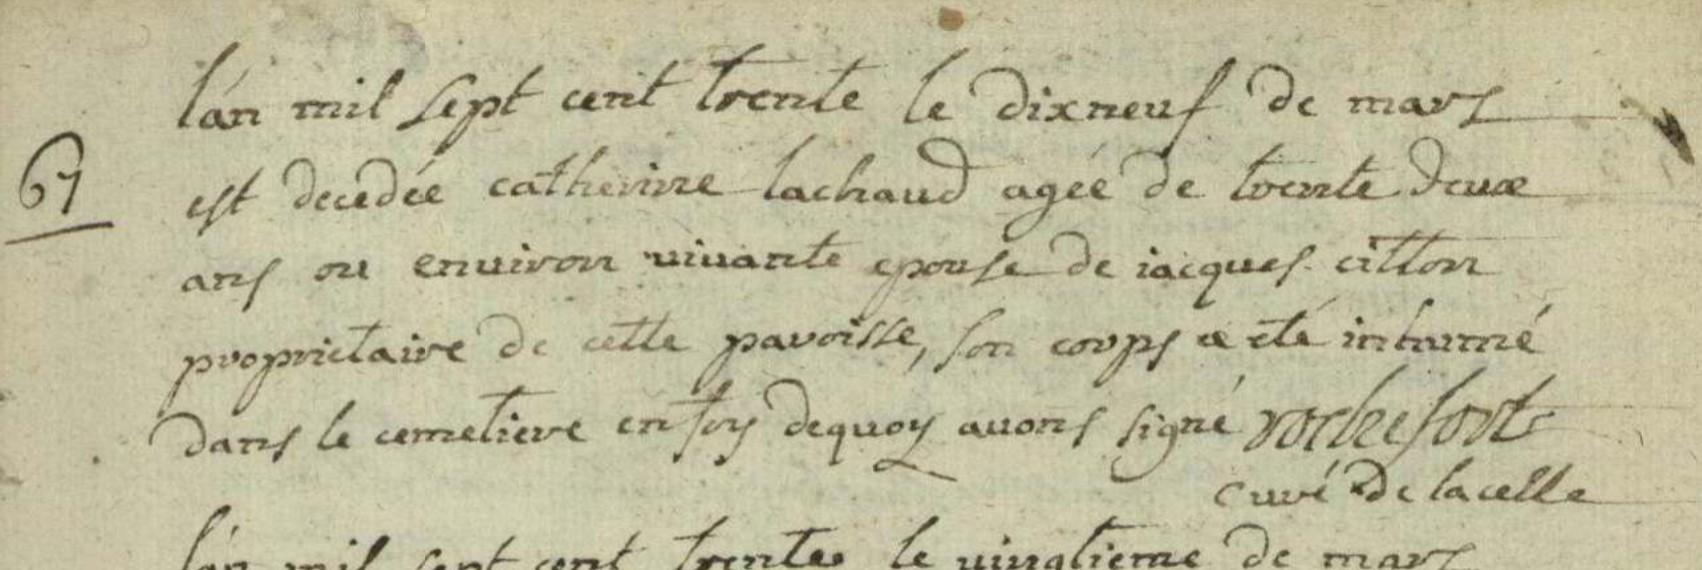 lán mil sept cent trente le dixneuf de mars
67
est decedée catherine lachaud agée de trente deux
ans ou environ vivante epouse de iacques citton
proprietaire de cette paroisse, son corps a eté inhumé
dans le cemetiere en foy dequoy avons signé rochefort
curé de lacelle
lán mil sept cent trente le vingtieme de mars